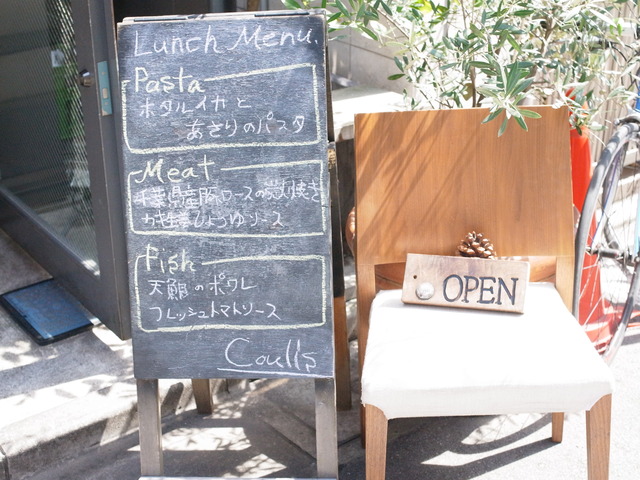 Lunch Menu.
Pasta
ホタルイカと
あさりのパスタ
Meat
千葉県産豚ロースの炭火焼き
ソース
Fish
天鯛のポワレ
フレッシュトマトソース
Coulls
OPEN